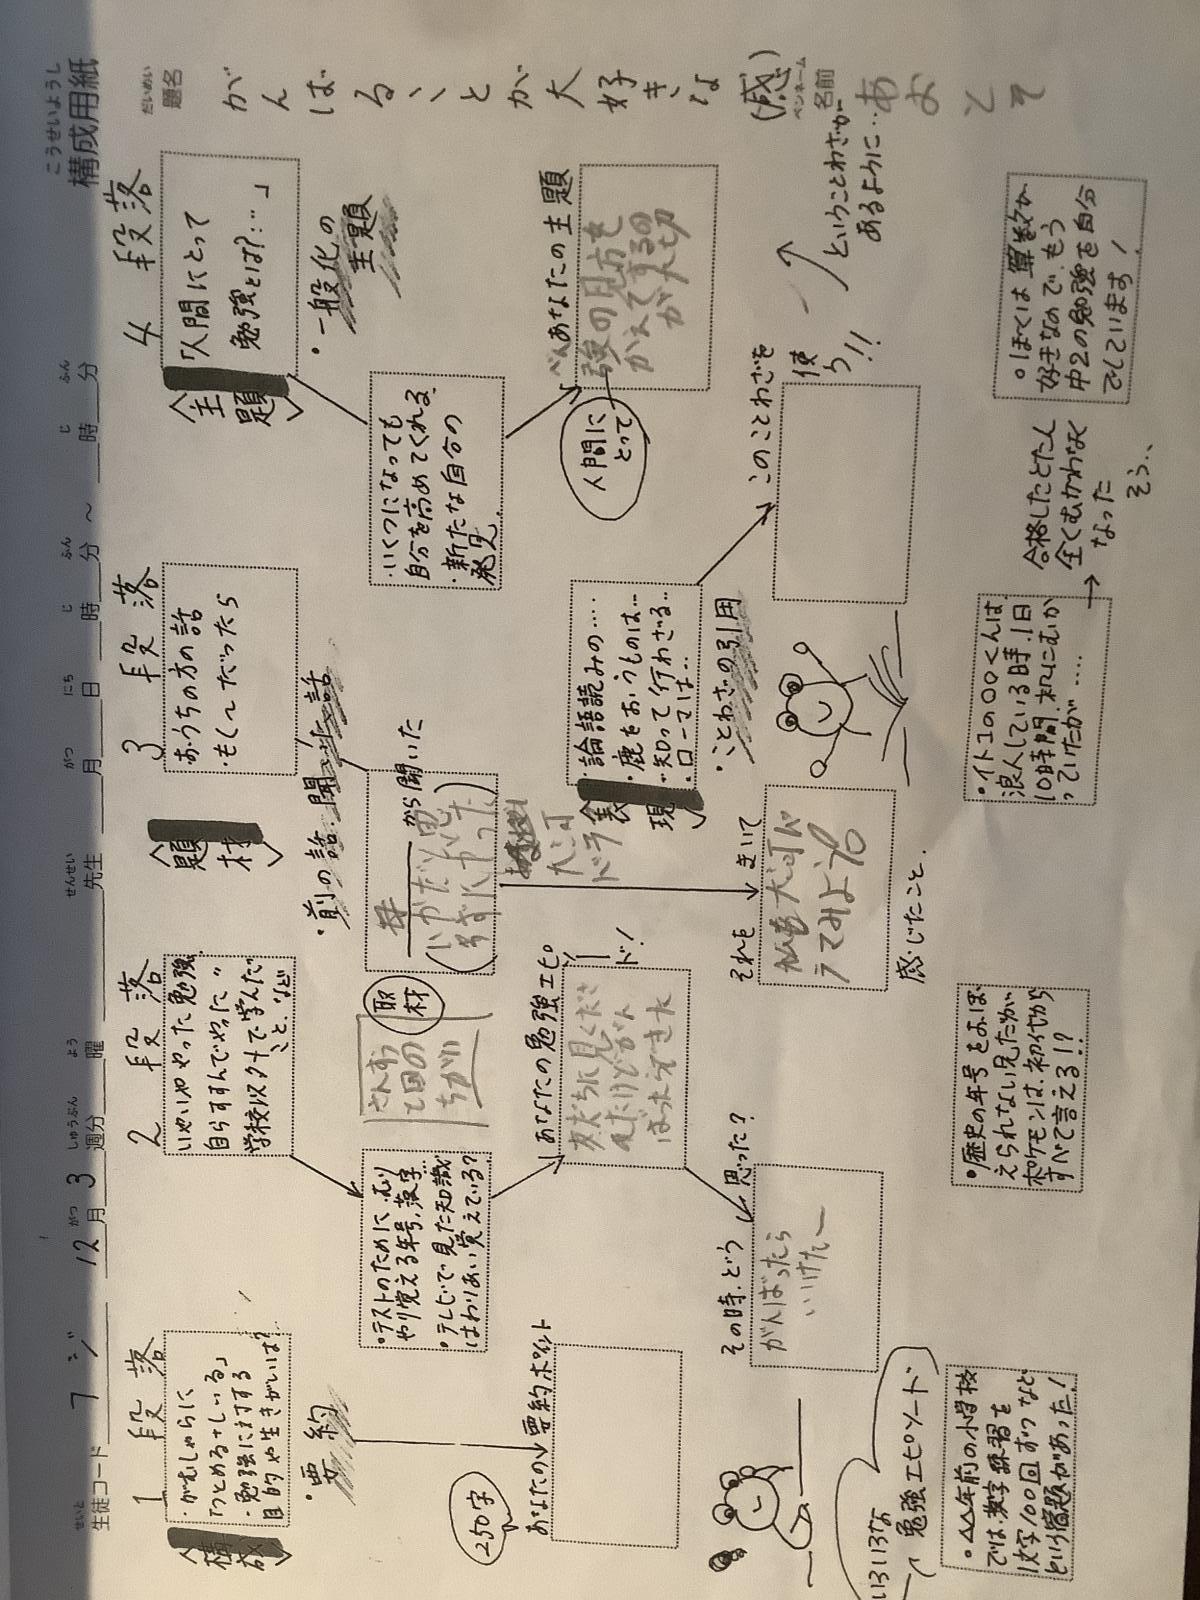 こうせいようし
構成用紙
だいめい
題名
がんばることが大好きな(感)
ペンネーム
名前
あおとそ
せいと
生徒コード
フジ
12月3週
がつ
しゅうぶん
分
よう
曜
せんせい
先生
がつ
月
にち
日
じ
時
ふん
分
～
じ
時
ふん
分
1段落
〈構成〉
・がむしゃらに
「つとめる+しいる」
・勉強に対する
目的や生きがいは?
・要約
250字
あなたの要約ポイント
2段落
いやいややった勉強
自らすすんでやった〃
学校以外で学んだ
こと、など
・テストのために、むり
やり覚える年号、漢字…
・テレビで見た知識
はわりあい覚えている?
さんすう
と国の
ちがい
取材
あなたの勉強エピソード!
友だちに見くださ
れたけどがん
ばったらできた
その時、どう思った?
がんばったら
いけたー
3段落
〈題材〉
おうちの方の話
・もし〜だったら
・前の話・聞いた話
母から聞いた
大河
ドラ
それをきいて
私も大河ド
えてみよう
感じたこと。
〈表現〉
・論語読みの…
・鹿をおうものは…
・知って行わざる…
・ローマは…
・ことわざの引用
このことわざを
使う!!
ということわざが
あるように…
4段落
〈主題〉
「人間にとって
勉強とは?…」
・一般化の
主題
・いくつになっても
自分を高めてくれる
・新たな自分の
発見
人間に
とって
あなたの主題
べん
強の見方を
かえてするの
が大切
いろいろな
勉強エピソード
・△△年前の小学校
では、数字練習を
1文字100回ずつなど
という宿題があった!
・歴史の年号をおぼ
えられない兄だが、
ポケモンは、初代から
すべて言える!?
・イトコの〇〇くんは、
浪人している時、1日
10時間、机にむか
っていたが…
→
合格したとたん
全くむかわなく
なった
そう..
・ぼくは算数が
好きなので、もう
中2の勉強を自分
でしています!